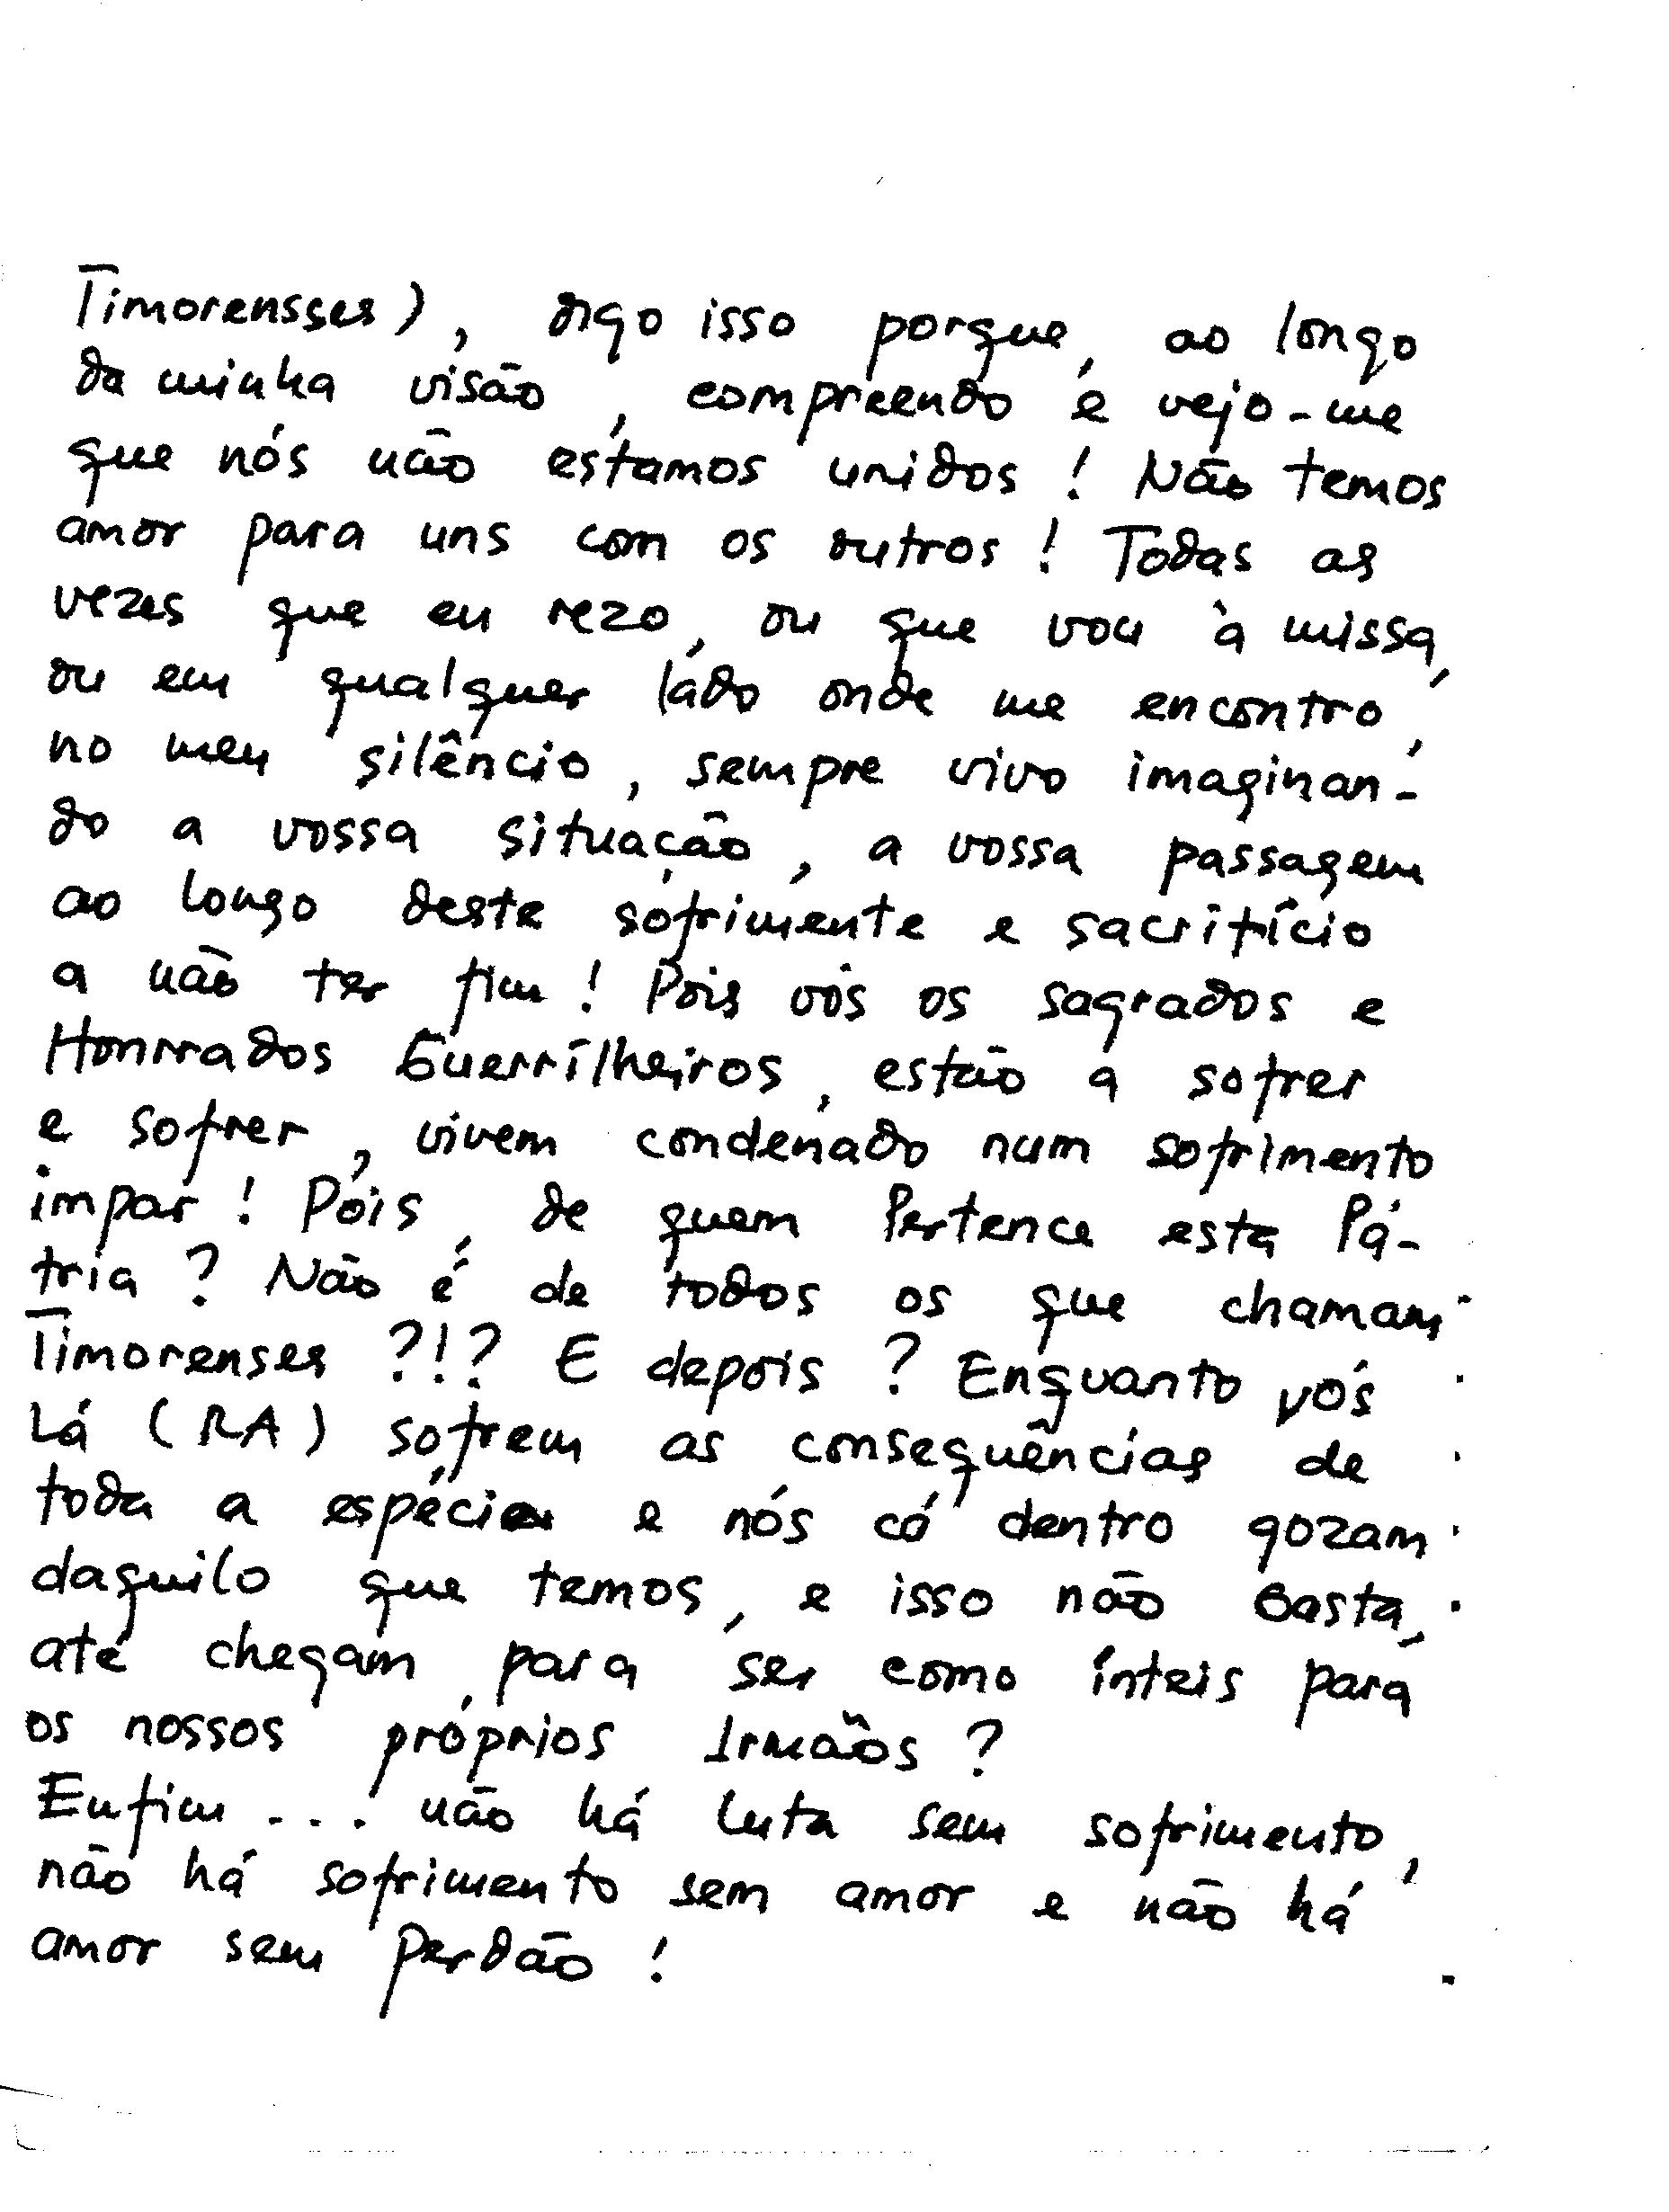 Timorensses), digo isso porque, ao longo
da minha visão, compreendo e vejo-me
que nós não estamos unidos! Não temos
amor para uns com os outros! Todas as
vezes que eu rezo, ou que vou à missa,
ou em qualquer lado onde me encontro,
no meu silêncio, sempre vivo imaginan-
do a vossa situação, a vossa passagem
ao longo deste sofrimente e sacrifício
a não ter fim! Pois vós os sagrados e
Honrrados Guerrilheiros, estão a sofrer
e sofrer, vivem condenado num sofrimento
impar! Póis, de quem Pertence esta Pá-
tria? Não é de todos os que chamam
Timorenses?!? E depois? Enquanto vós
Lá (RA) sofrem as consequências de
toda a espécie e nós cá dentro gozam
daquilo que temos, e isso não basta,
até chegam para ser como ínteis para
os nossos próprios Irmãos?
Enfim... não há luta sem sofrimento,
não há sofrimento sem amor e não há
amor sem Perdão!